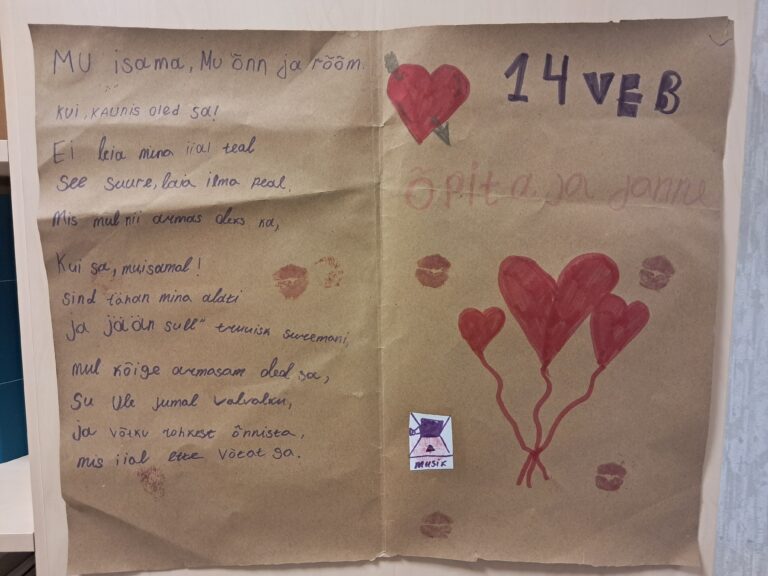 MU isama, Mu õnn ja rõõm.
Kui, KAUNIS oled sa!
Ei leia mina iial teal
See suure, laia ilma peal,
Mis mul nii armas oleks ka,
Kui sa, mu isamal!
Sind tänan mina alati
ja jään sull" truuisk suremani,
mul kõige armasam oled sa,
Su üle jumal valvaku,
ja võtku rohkest õnnista,
mis iial ette võtat sa.
14 VEB
Õpitaja Janne
musik